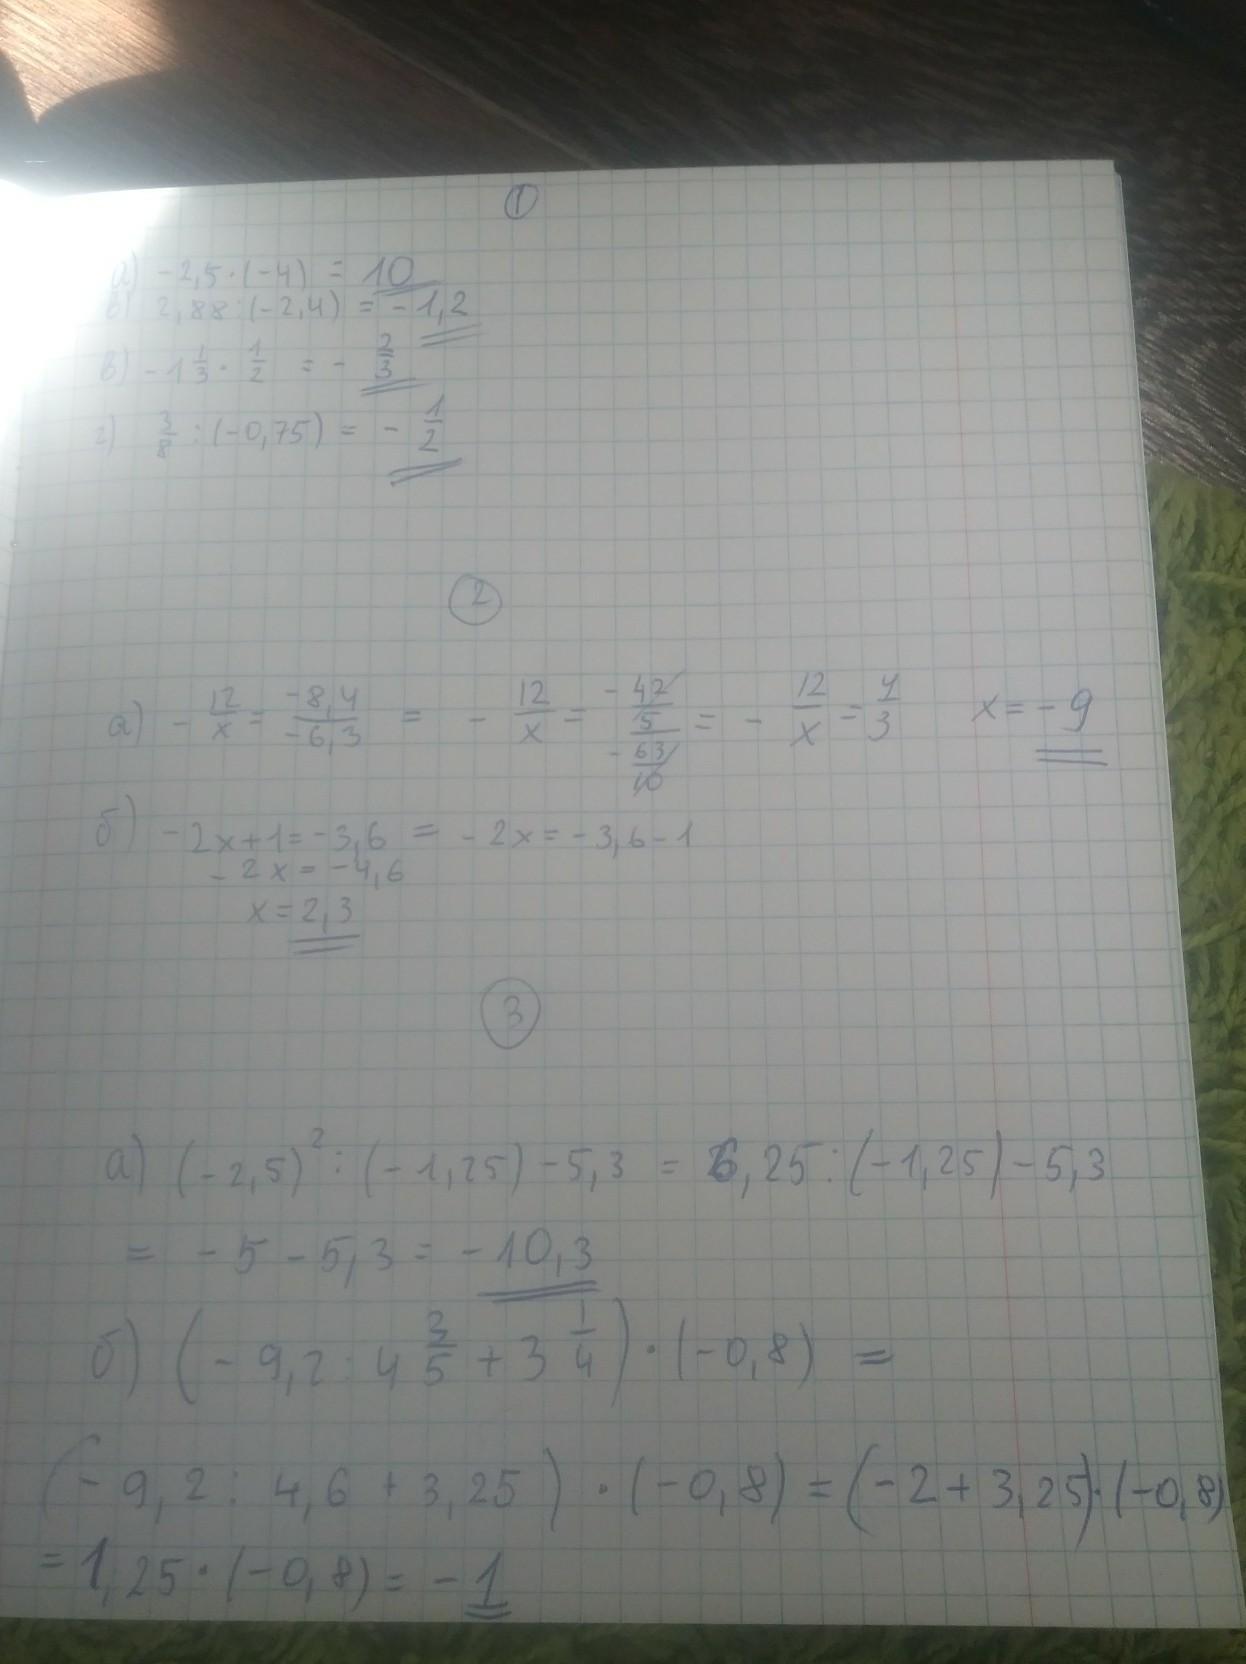 1
а) -2,5·(-4) = 10
б) 2,88:(-2,4) = -1,2
в) -1 1/3 · 1/2 = - 2/3
г) 3/8 : (-0,75) = - 1/2
2
а) - 12/x = -8,4/-6,3 = - 12/x = (- 42/5)/(- 63/10) = - 12/x = 4/3 x = -9
б) -2x+1=-3,6 = -2x=-3,6-1
-2x=-4,6
x=2,3
3
а) (-2,5)²:(-1,25)-5,3 = 6,25:(-1,25)-5,3
= -5-5,3 = -10,3
б) (-9,2:4 3/5+3 1/4)·(-0,8) =
(-9,2:4,6+3,25)·(-0,8)=(-2+3,25)·(-0,8)
=1,25·(-0,8)= -1